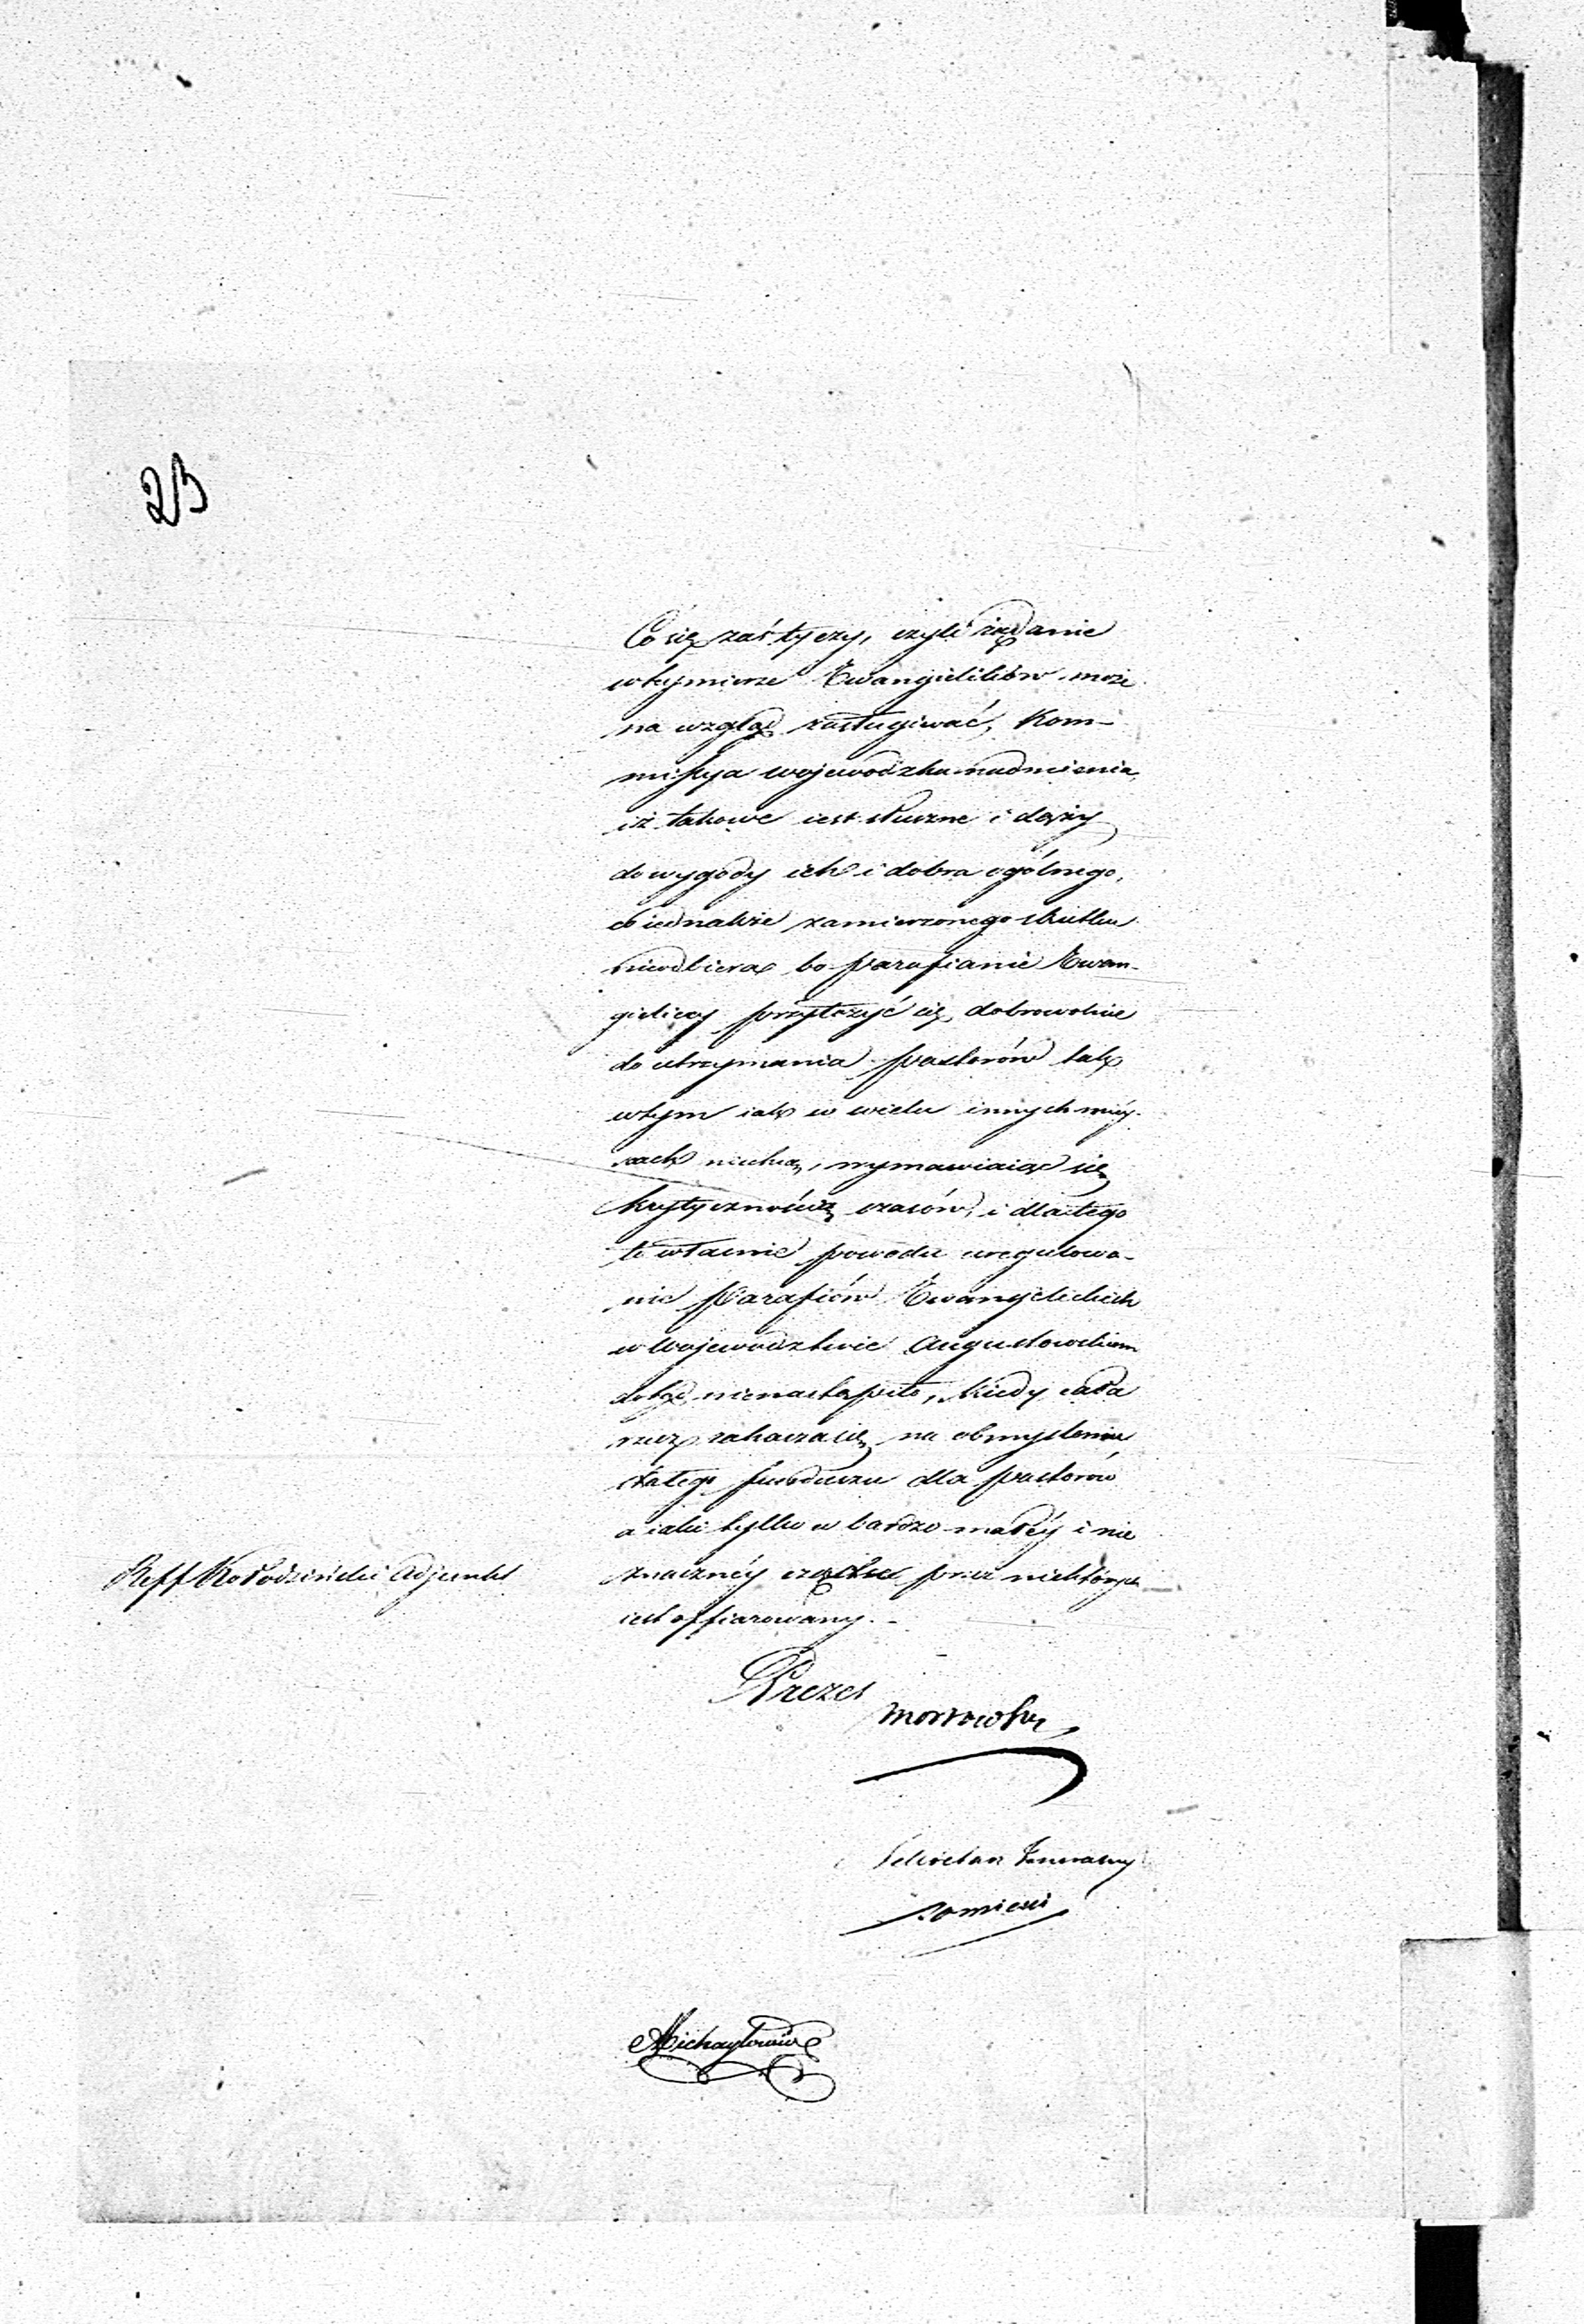 25
Co się zaś tyczy, czyli żądanie
wtymierze Ewangielików może
na wzgląd zasługiwać, Kom-
missya wojewodzka nadmienia,
iż takowe iest słuszne i dąży
do wygody ich i dobra ogólnego,
co iednakże zamierzonego skutku
nieodbiera, bo parafianie Ewan-
gieliccy przyłożyć się dobrowolnie
do utrzymania pastorów tak
wtym iak w wielu innych miey-
scach niechcą, wymawiaiąc się
krytycznością czasów, i dlatego
to właśnie powodu uregulowa-
nie parafiów Ewangelickich
w Wojewodztwie Augustowskiem
dotąd nienastąpiło, kiedy cała
rzecz zahacza się na obmyśleniu
stałego funduszu dla pastorów
a iaki tylko w bardzo małéy i nie
Reff Kołodziński Adjunkt
znacznéy cząstce przez niektórych
iest offiarowany.
Prezes
Sekretarz Jeneralny
Michayłowicz